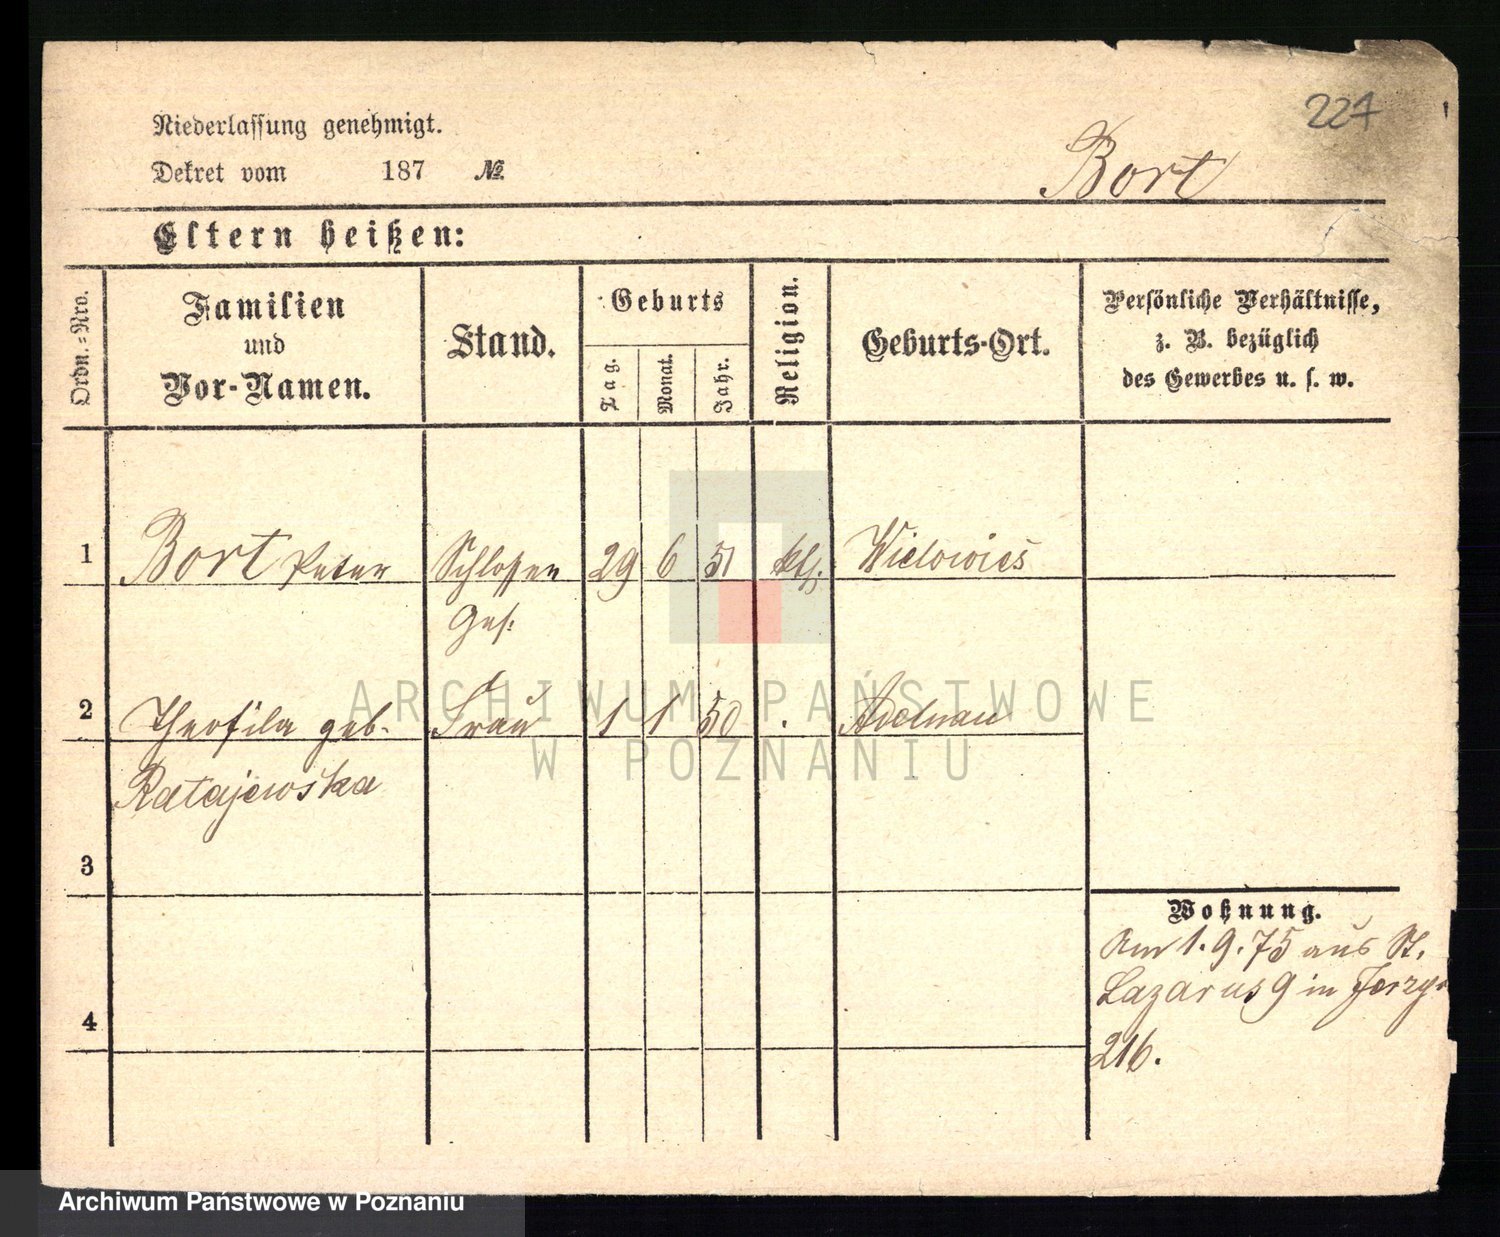 227
Niederlassung genehmigt.
Dekret vom 187 №
Bort
Eltern heißen:
Ordn.-Nro.
Familien
und
Vor-Namen.
Stand.
Geburts
Tag.
Monat.
Jahr.
Religion.
Geburts-Ort.
Persönliche Verhältnisse,
z. B. bezüglich
des Gewerbes u. s. w.
1 Bort Peter Schlosser 29 6 51 kth. Wielowies
Ges.
2 Theofila geb. Frau 1 1 50 Adelnau
Ratajewska
3
4
Wohnung.
Am 1.9.75 aus St.
Lazarus 9 in Jerzyce
216.
ARCHIWUM PAŃSTWOWE
W POZNANIU
Archiwum Państwowe w Poznaniu